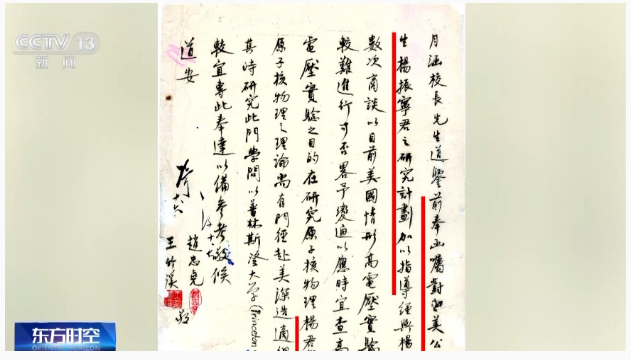 CCTV 13
新闻
月涵校長先生道鑒前奉函囑對留美公
生楊振寧君之研究計劃加以指導經與楊
數次商談以目前美國情形高電壓實驗
較難進行可否畧予變通以應時宜查高
電壓實驗之目的在研究原子核物理楊君
原子核物理之理論尚有門徑赴美深造適
其時研究此門學問以普林斯澄大学(Princeton
較宜專此奉達以備參考敬候
道安
趙忠堯
王竹溪 敬
东方时空